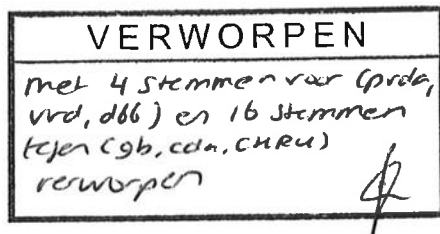 VERWORPEN
met 4 stemmen voor (pvda,
vvd, d66) en 16 stemmen
tegen (gb, cda, CHRU)
verworpen